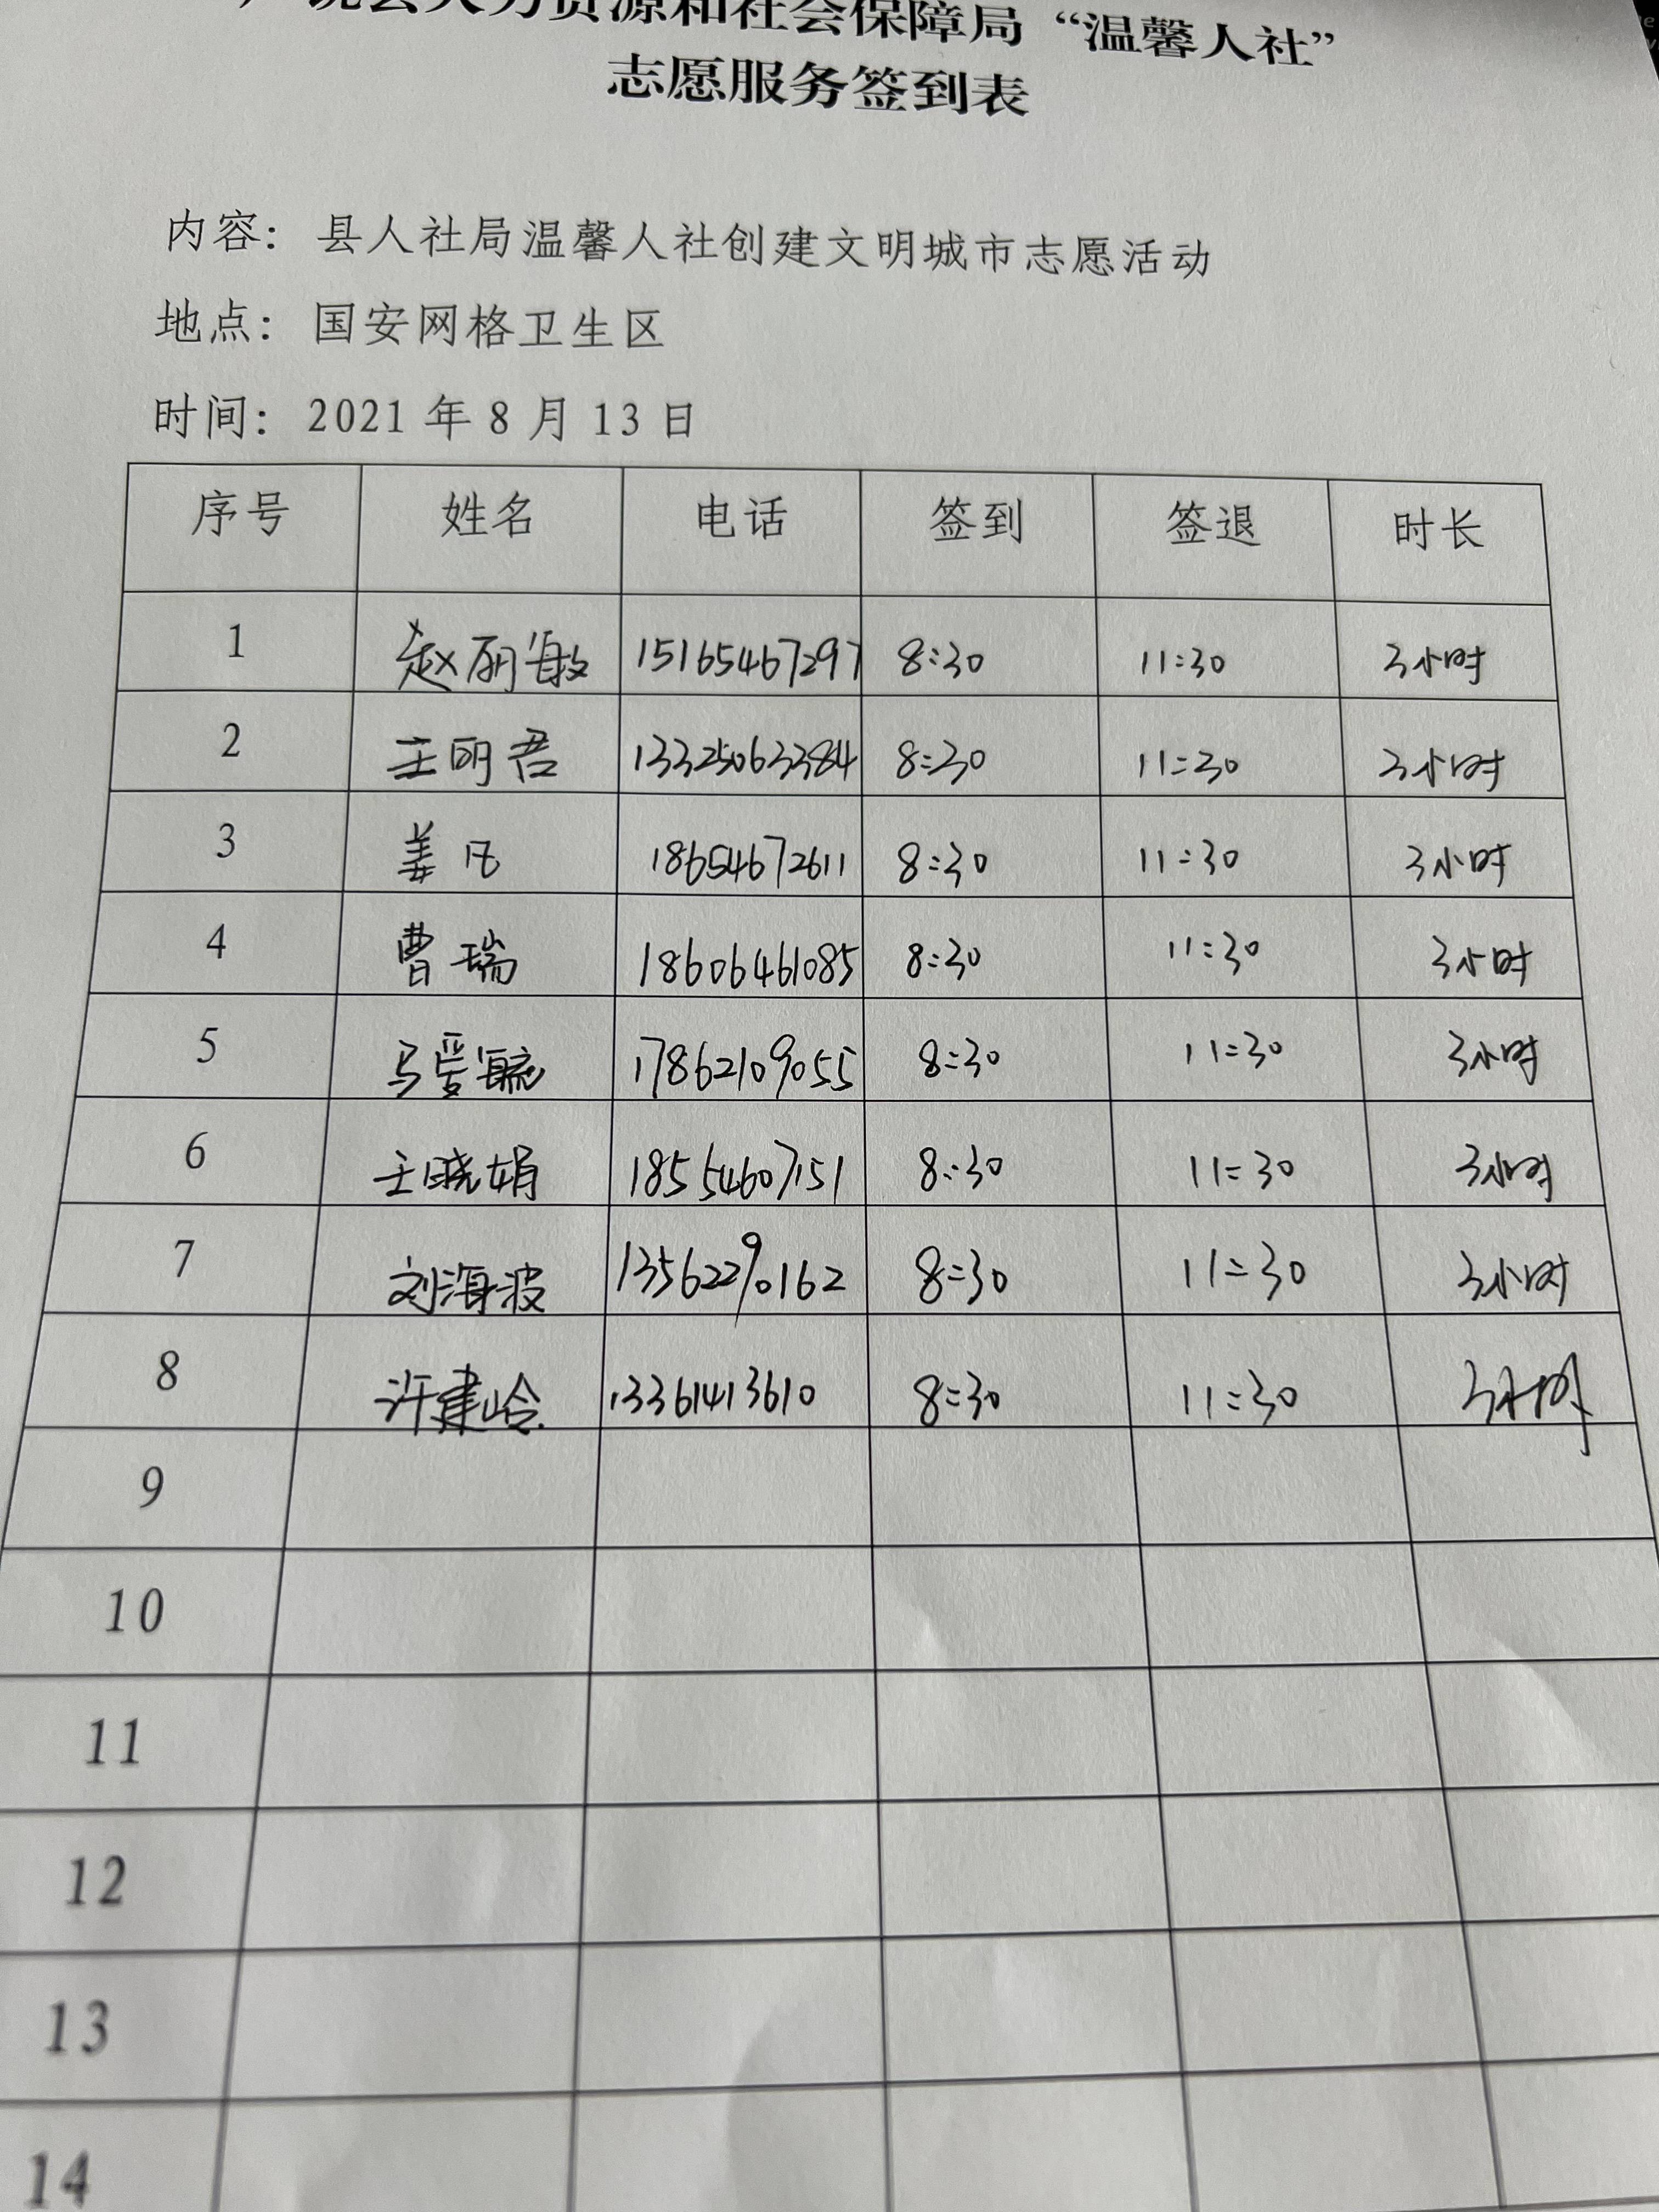 广饶县人力资源和社会保障局“温馨人社”
志愿服务签到表
内容: 县人社局温馨人社创建文明城市志愿活动
地点: 国安网格卫生区
时间: 2021 年 8 月 13 日
序号 姓名 电话 签到 签退 时长
1 赵丽敏 15165467297 8:30 11:30 3小时
2 王明君 13325063384 8:30 11:30 3小时
3 姜凡 18654672611 8:30 11:30 3小时
4 曹瑞 18606461085 8:30 11:30 3小时
5 马爱毓 17862109055 8:30 11:30 3小时
6 王晓娟 18554607151 8:30 11:30 3小时
7 刘海波 13562290162 8:30 11:30 3小时
8 许建岭 13361413610 8:30 11:30 3小时
9
10
11
12
13
14